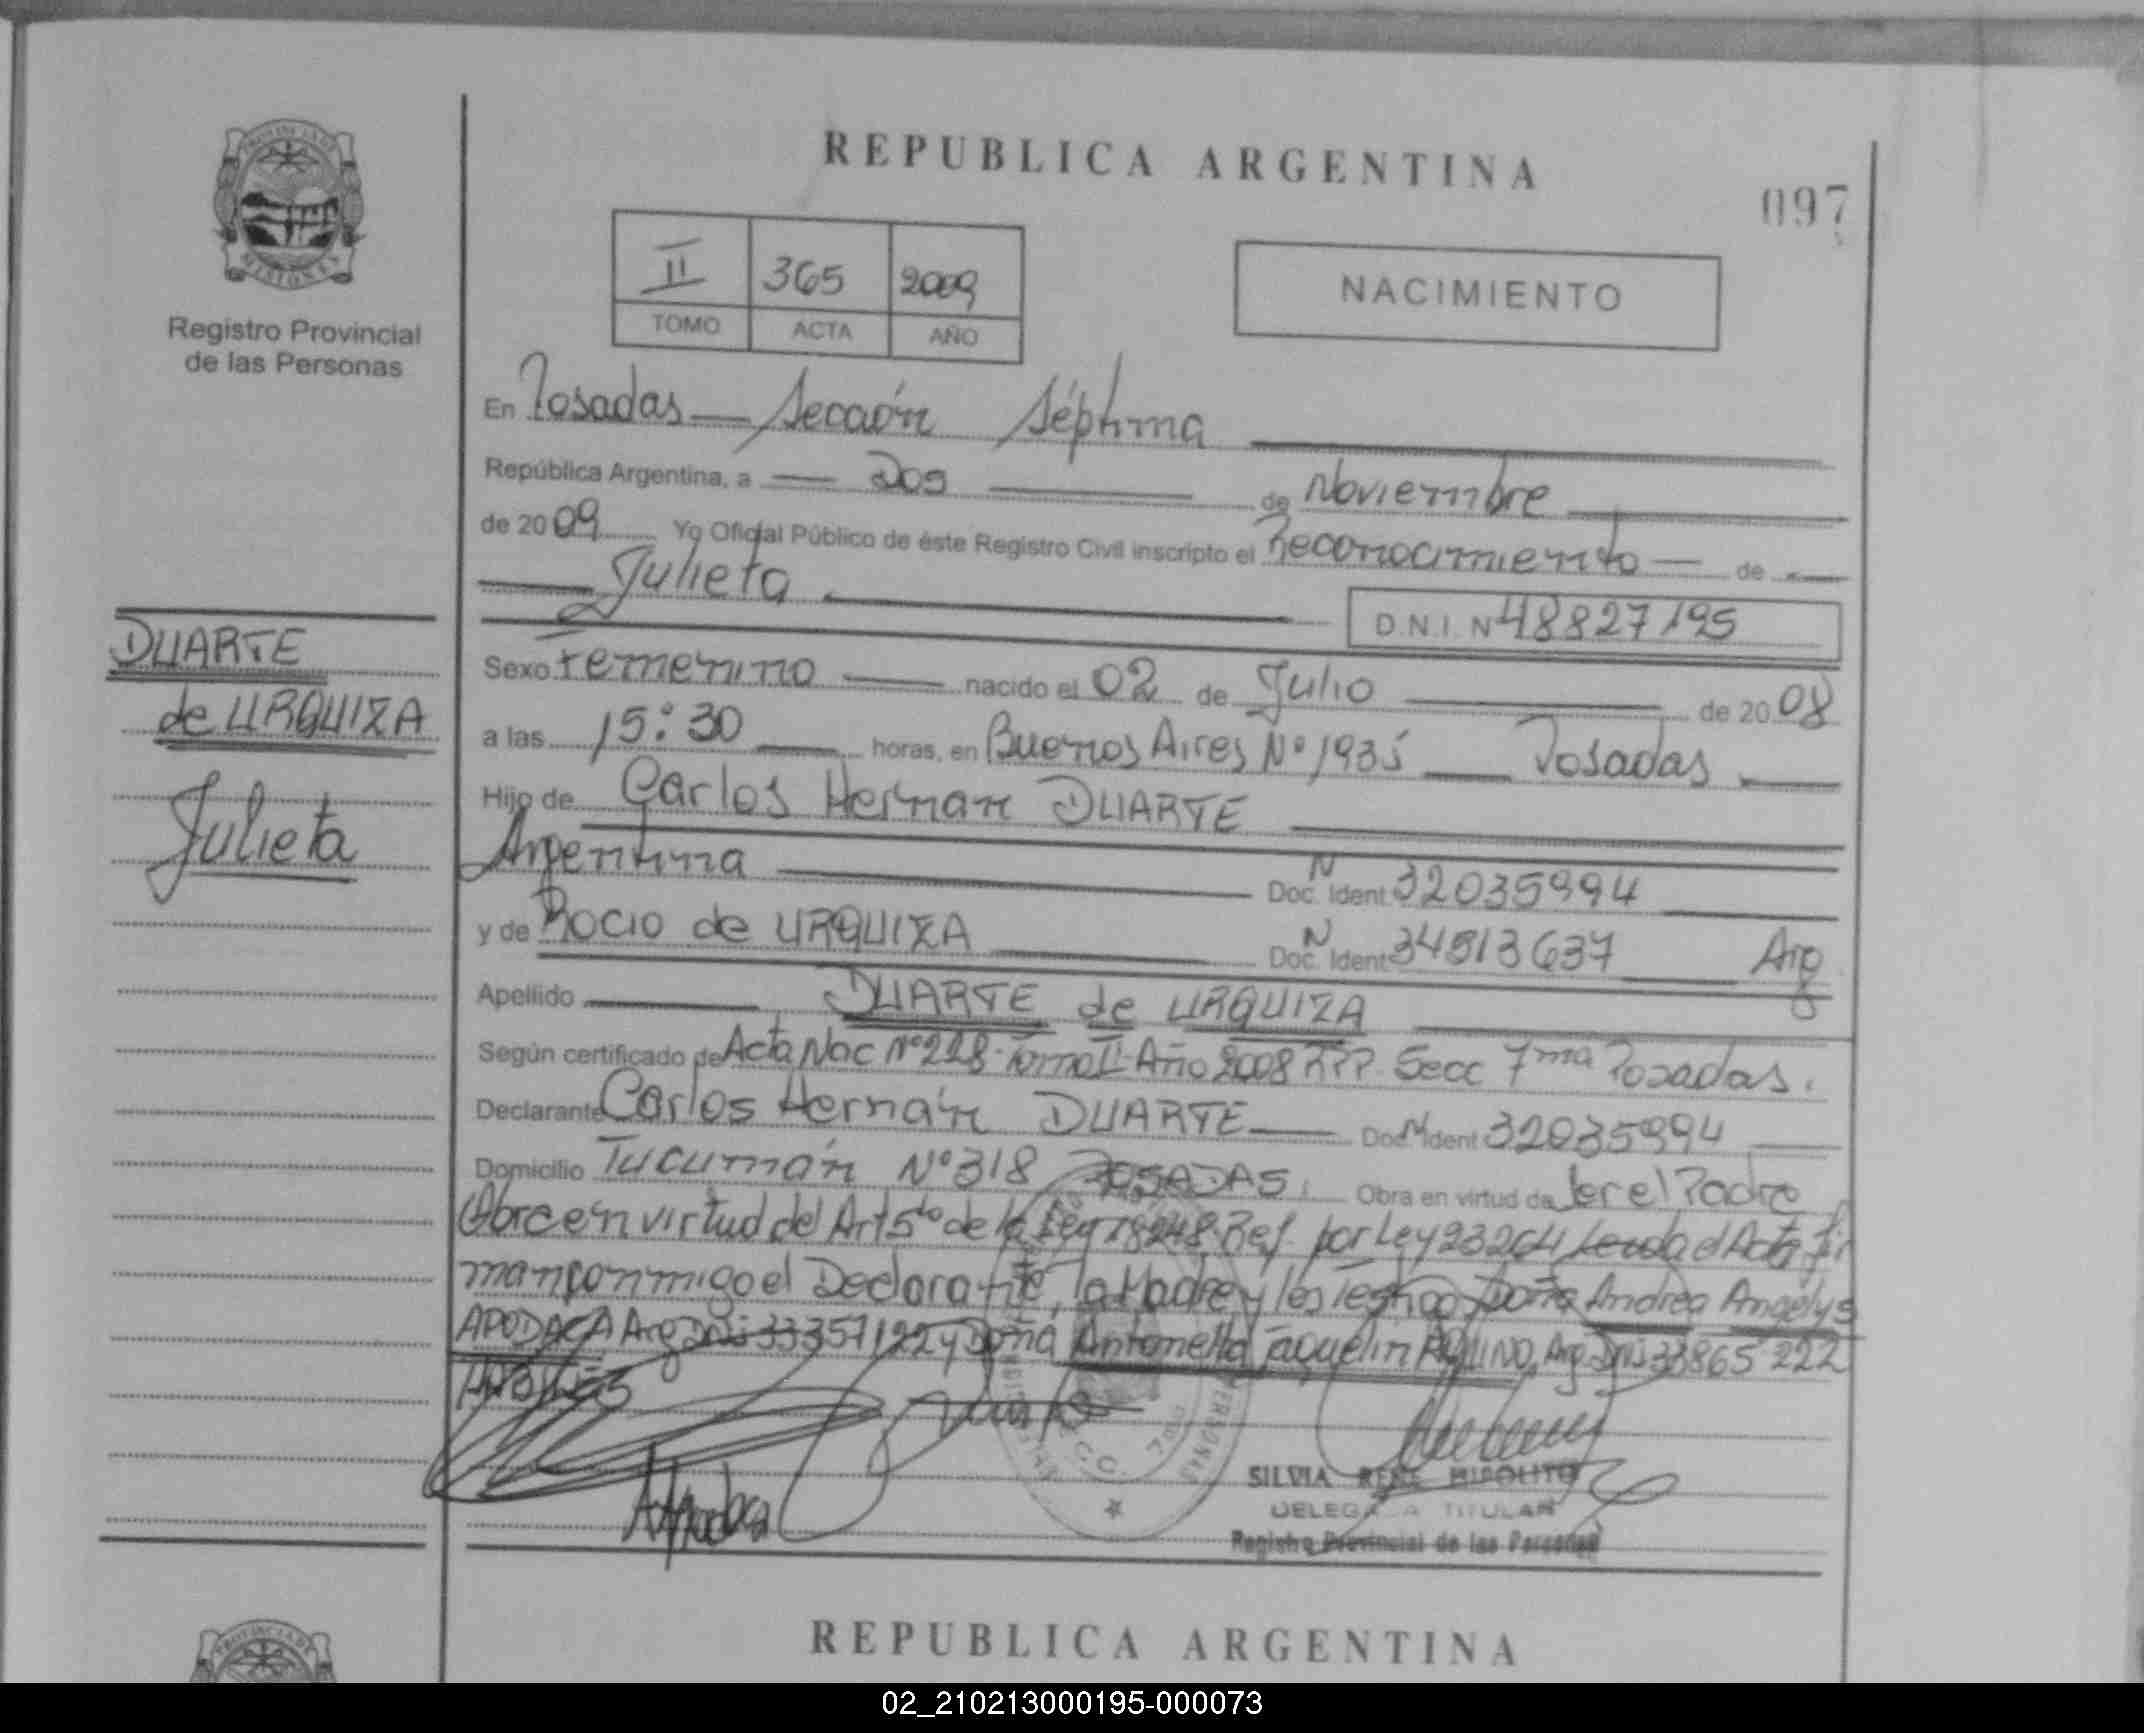 REPUBLICA ARGENTINA
097
PROVINCIA DE
MISIONES
Registro Provincial
de las Personas
II 365 2009
TOMO ACTA AÑO
NACIMIENTO
En Posadas — Sección Séptima
República Argentina, a — Dos — de Noviembre
de 2009 Yo Oficial Público de éste Registro Civil inscripto el Reconocimiento — de —
Julieta
D.N.I. N 48827195
DUARTE
de URQUIZA
Julieta
Sexo Femenino — nacido el 02 de Julio — de 2008
a las 15:30 — horas, en Buenos Aires Nº 1935 — Posadas —
Hijo de Carlos Hernan DUARTE
Argentina — Doc. Ident N 32035994
y de Rocio de URQUIZA — Doc. Ident N 34513637 — Arg
Apellido — DUARTE de URQUIZA
Según certificado de Acta Nac Nº 228- Tomo II- Año 2008 RPP. Secc 7ma Posadas.
Declarante Carlos Hernán DUARTE — Doc N Ident 32035994
Domicilio Tucumán Nº 318 POSADAS. Obra en virtud de Ser el Padre
Obra en virtud del Art 5to de la Ley 18248. Ref. por Ley 23264 Leida el Acta fir
man conmigo el Declarante, la Madre y los testigos Doña Andrea Angelys
APODACA Arg Dni 33357122 y Doña Antonella Jaquelin AQUINO, Arg Dni 33865222
SILVIA RENE HIPOLITO
DELEGADA TITULAR
Registro Provincial de las Personas
REPUBLICA ARGENTINA
02_210213000195-000073